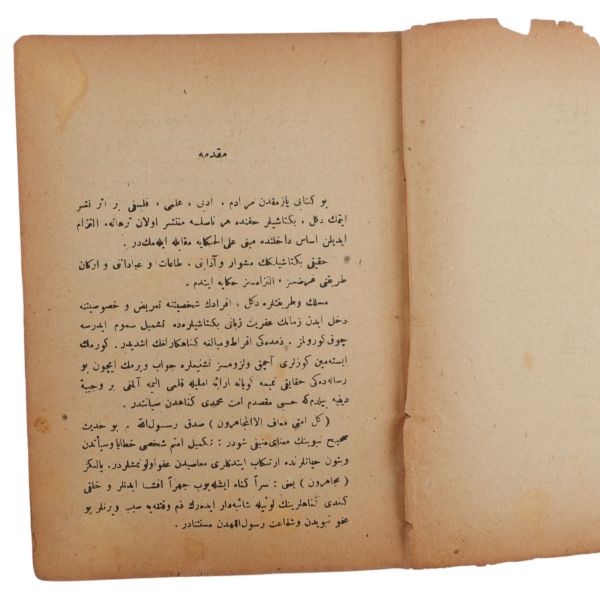 مقدمه
بو كتابى يازمقدن مرادم ، ادبى ، علمى ، فلسفى بر اثر نشر
ايتمك دكل ، بكتاشيلر حقنده هر ناصلسه منتشر اولان ترهاته، التزام
ايديلن اساس داخلنده مبنى على الحكايه مقابله ايله مكدر .
حقيقى بكتاشيلكك مشوار و آدابنى ، طاعات و عباداتى و اركان
طريقنى غرضسز ، التزامسز حكايه ايتدم .
مسلك و طريقتلره دكل ، افرادك شخصيتنه تعريض و خصوصيتنه
دخل ايدن زمانك عفريت زبانى بكتاشيلره ده تشميل سموم ايدرسه
چوق كورولمز . ذمده كى افراط و مبالغه كناهكارلغك اشديدر . كورمك
ايسته مين كوزلرى آچمق ولزومسز تشنيعلره جواب ويرمك ايچون بو
رساله ده كى حقايقى ارائه امليله قلمى اليمه آلمغى بر وجيبهٔ
دينيه بيلدم كه حسبى مقصدم امت محمدى كناهدن صيانتدر .
( كل امتى معاف الا المجاهرون ) صدق رسول الله . بو حديث
صحيح نبوينك معناى منيفى شودر : تكميل امتم شخصى خطايا و سيأتدن
وبتون حياتلرنده ارتكاب ايتدكلرى معاصيدن عفو اولونمشلردر. يالكز
( مجاهرون ) يعنى : سراً كناه ايشله يوب جهراً افشا ايدنلر و خلقى
كندى كناهلرينك لوثيله شائبه دار ايده رك ذم وفتنه يه سبب ويرنلر بو
عفو نبويدن و شفاعت رسول اللهدن مستثنادر .